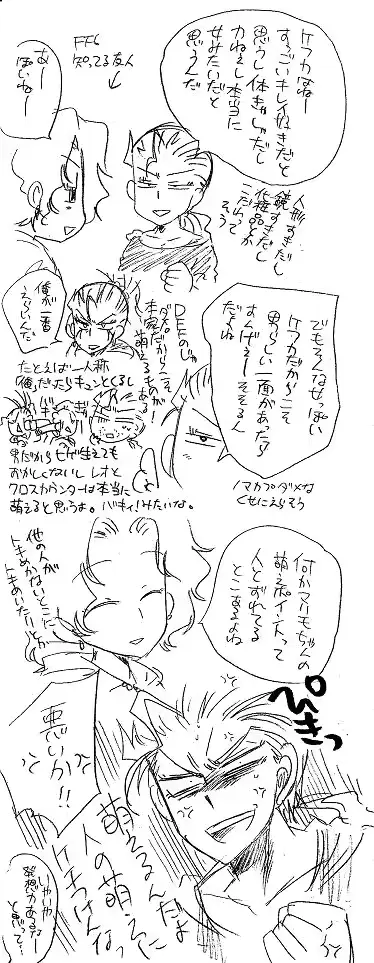 ケフカはねー
すっごいキレイ好きだと
思うし体きゃしゃだし
力ねぇし本当に
女みたいだと
思うんだ
FF6
知ってる友人
あー
ぽいねー
人形すきだし
鏡すきだし
化粧品とか
こだわって
そう
でもそんな女っぽい
ケフカだからこそ
男らしい一面があったら
すんげぇーそそるん
だよね
DFFのじゃ
ダメ。
本家だからこそ
萌えるものがある
俺が一番
えらいんだ。
たとえば一人称
俺だったらキュンとくるし
男だからヒゲ生えても
おかしくないし レオと
クロスカウンターは本当に
萌えると思うよ。バキィ!みたいな。
ノマカプダメな
くせにえらそう
何かマリモちゃんの
萌えポイントって
人とずれてる
とこあるよね
他の人が
トキめかないとこに
トキめいたりとか
ぴきっ
悪いか!!
萌えるんだよ
人の萌えに
ケチつけんなっ
いやいや
発想力あるなー
と思って…